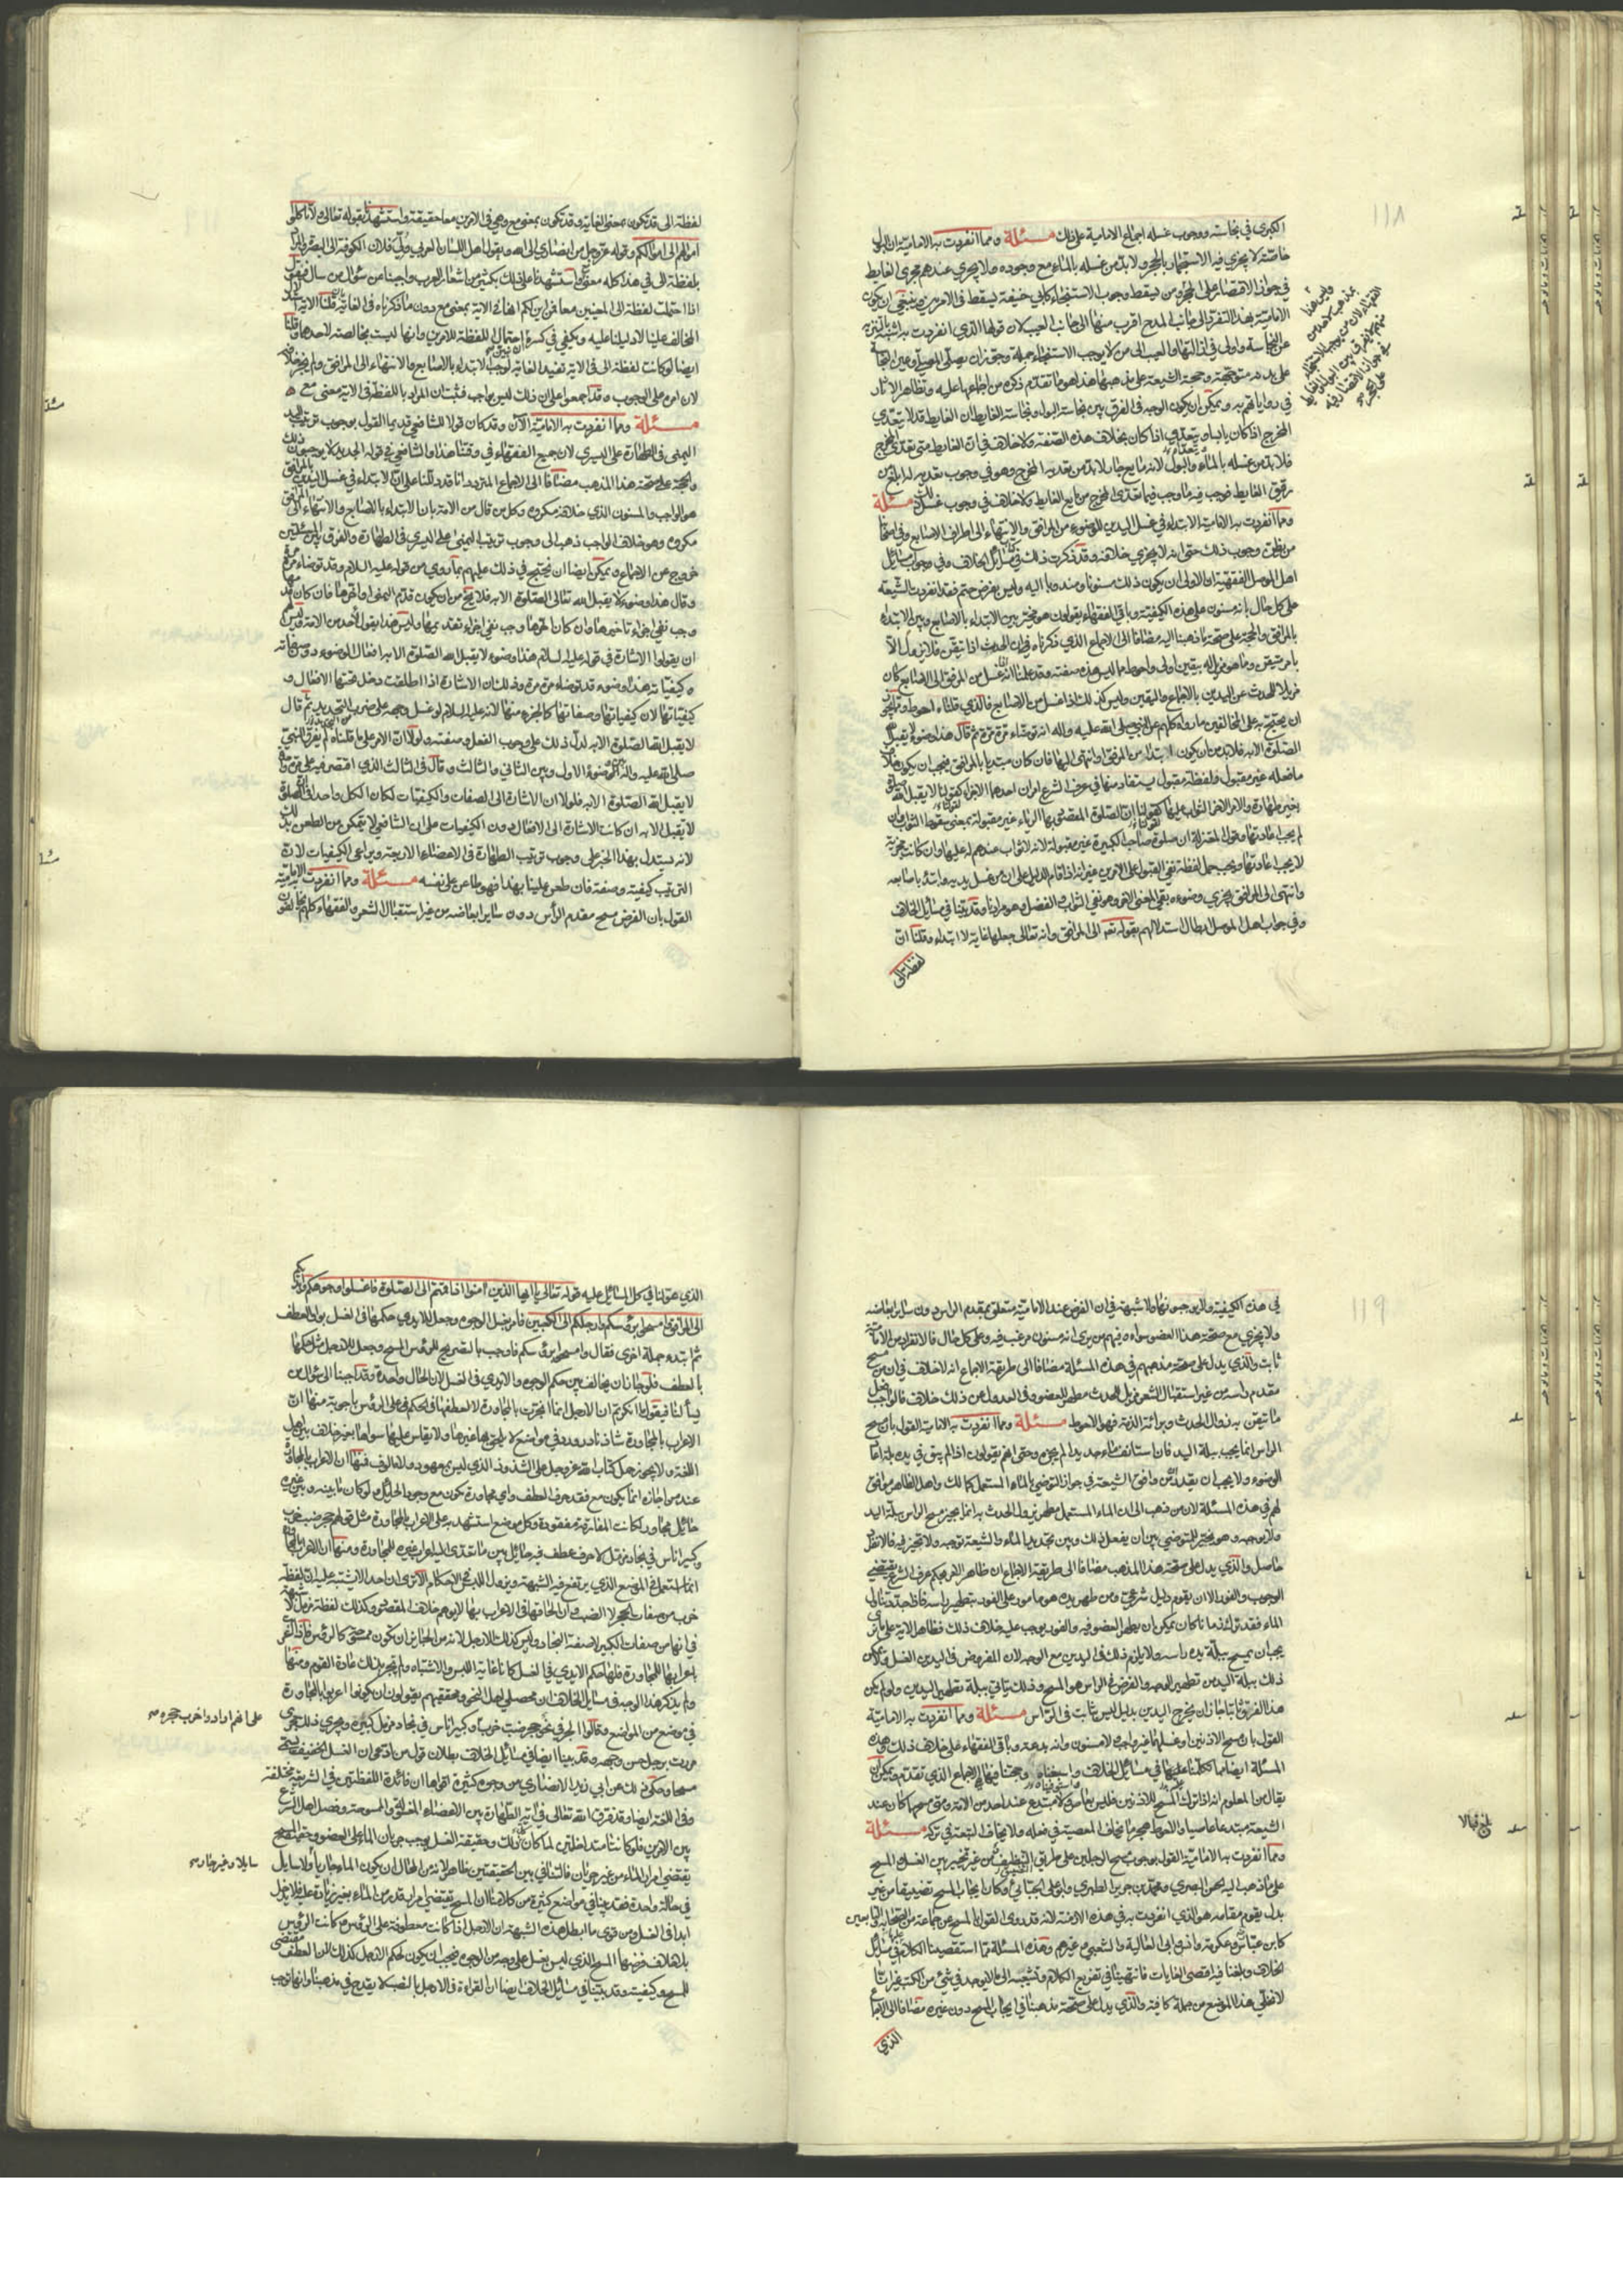 ١١٨
الكبرى في نجاسته ووجوب غسله اجماع الامامية على ذلك مسئلة ومما انفردت به الامامية ان البول
خاصة لا يجزي فيه الاستجمار بالحجر ولا بد من غسله بالماء مع وجوده ولا يجري عندهم مجرى الغايط
في جواز الاقتصار على الحجر ومن يسقط وجوب الاستنجاء كابي حنيفة يسقط في الامرين وينبغي ان يكون
الامامية بهذا التفرد الى جانب المدح اقرب منها الى جانب العيب لان قولها الذي انفردت به اشبه بالتنزيه
عن النجاسة واولى في ازالتها والعيب الى من لا يوجب الاستنجاء جملة وجوز ان يصلي المصلي وعين النجاسة
على بدنه متوجهة وحجة الشيعة على مذهبها هذا هو ما تقدم ذكره من اجماعها عليه وتظاهر الاثار
في رواياتهم به ويمكن ان يكون الوجه في الفرق بين نجاسة البول ونجاسة الغايط ان الغايط قد لا يتعدى
المخرج اذا كان يابسا ويتعداه اذا كان بخلاف هذه الصفة ولا خلاف في ان الغايط متى تعدى المخرج
فلا بد من غسله بالماء والبول لانه مايع جار لا بد من تعديه المخرج وهو في وجوب تعديه له ابلغ من
رقيق الغايط فوجب فيه ما وجب فيما تعدى المخرج من مايع الغايط ولا خلاف في وجوب غسل ذلك مسئلة
ومما انفردت به الامامية الابتداء في غسل اليدين للوضوء من المرافق والانتهاء الى اطراف الاصابع وفي اصحابنا
من يظن وجوب ذلك حتى انه لا يجزي خلافه وقد ذكرت ذلك في مسائل الخلاف وفي جواب مسائل
اهل الموصل الفقهية ان الاولى ان يكون ذلك مسنونا ومندوبا اليه وليس بفرض حتم فقد انفردت الشيعة
على كل حال بانه مسنون على هذه الكيفية وباقي الفقهاء يقولون هو مخير بين الابتداء بالاصابع وبين الابتداء
بالمرافق والحجة على صحة ما ذهبنا اليه مضافا الى الاجماع الذي ذكرناه في ان الحدث اذا تيقن فلا يزول الا
بامر متيقن وما هو مزيل له بيقين اولى واحوط مما ليس هذه صفته وقد علمنا انه اذا غسل من المرافق الى الاصابع كان
مزيلا للحدث عن اليدين بالاجماع واليقين وليس كذلك اذا غسل من الاصابع فالذي قلناه احوط ومما يجوز
ان يحتج به على المخالفين ما رواه كلهم عن النبي صلى الله عليه واله انه توضاء مرة مرة ثم قال هذا وضوء لا يقبل الله
الصلوة الا به فلا بد من ان يكون ابتدا من المرفق او انتهى اليها فان كان مبتديا بالمرافق فيجب ان يكون خلاف
ما فعله غير مقبول ولفظة مقبول يستفاد منها في عرف الشرع امران احدهما الاجزاء كقولنا لا يقبل الله صلوة
بغير طهارة والامر الاخر الثواب عليها كقولنا ان الصلوة المقصود بها الرياء غير مقبولة بمعنى سقوط الثواب وان
لم يجب اعادتها وقول المعتزلة ان صلوة صاحب الكبيرة غير مقبولة لانه لا ثواب عندهم له عليها وان كانت مجزية
لا يجب اعادتها ويجب حمل لفظة نفي القبول على الامرين غير انه اذا قام الدليل على ان من غسل يديه وابتدء باصابعه
وانتهى الى المرافق يجزي وضوءه بقي المعنى الاخر وهو نفي الثواب والفضل وهو مرادنا وقد بينا في مسائل الخلاف
وفي جواب اهل الموصل ابطال استدلالهم بقوله تعالى الى المرافق وانه تعالى جعلها غاية لا ابتداء وقلنا ان
لفظة الى
لفظة الى قد تكون بمعنى الغاية وقد تكون بمعنى مع وهي في الامرين معا حقيقة واستشهدنا بقوله تعالى ولا تاكلوا
اموالهم الى اموالكم وقوله عز وجل من انصاري الى الله وبقول اهل اللسان العربي ولي فلان الكوفة الى البصرة والمراد
بلفظة الى في هذا كله معنى مع واستشهدنا على ذلك بكثير من اشعار العرب واجبنا عن سؤال من سال فيقول
اذا احتملت لفظة الى المعنيين معا فمن اين لكم انها في الاية بمعنى مع دون ما ذكرناه في الغاية بان قلنا الاية
المخالف علينا لا دليلنا عليه ويكفي في كسره احتمال اللفظة للامرين وانها ليست بخالصة لاحدهما وقلنا
ايضا لو كانت لفظة الى في الاية تفيد الغاية لوجب الابتداء بالاصابع والانتهاء الى المرافق ولم يجز خلافه
لان امره على الوجوب وقد اجمعوا على ان ذلك ليس بواجب فثبت ان المراد باللفظة في الاية معنى مع
مسئلة ومما انفردت به الامامية الان وقد كان قولا للشافعي قديما القول بوجوب ترتيب اليد
اليمنى في الطهارة على اليسرى لان جميع الفقهاء في وقتنا هذا والشافعي في قوله الجديد لا يوجبون ذلك
والحجة على صحة هذا المذهب مضافا الى الاجماع المتردد انا قد دللنا على ان الابتداء في غسل اليدين بالمرافق
هو الواجب والمسنون الذي خلافه مكروه وكل من قال من الامة بان الابتداء بالاصابع والانتهاء الى المرافق
مكروه وهو خلاف الواجب ذهب الى وجوب ترتيب اليمنى على اليسرى في الطهارة والفرق بين المسئلتين
خروج عن الاجماع ويمكن ايضا ان نحتج في ذلك عليهم بما روي من قوله عليه السلام وقد توضاء مرة مرة
وقال هذا وضوء لا يقبل الله تعالى الصلوة الا به فلا يخ من ان يكون قدم اليمنى او اخرها فان كان قدمها
وجب نفي اجزاء تاخيرها وان كان اخرها وجب نفي اجزاء تقديمها وليس هذا بقول لاحد من الامة وليس لهم
ان يقولوا الاشارة في قوله عليه السلام هذا وضوء لا يقبل الله الصلوة الا به الى افعال الوضوء دون صفاته
وكيفياته هذا وضوء وقد توضاء مرة مرة وذلك ان الاشارة اذا اطلقت دخل تحتها الافعال و
كيفياتها لان كيفياتها وصفاتها كالجزء منها لانه عليه السلام لو غسل وجهه على ضرب من التحديد ثم قال
لا يقبل الله الصلوة الا به لدل ذلك على وجوب الفعل وصفته ولولا ان الامر على ما قلناه لم يفرق النبي
صلى الله عليه واله بين وضوءه الاول وبين الثاني والثالث وقال في الثالث الذي اقتصر فيه على مرة واحدة
لا يقبل الله الصلوة الا به فلولا ان الاشارة الى الصفات والكيفيات لكان الكل واحد في ان الصلوة
لا تقبل الا به ان كانت الاشارة الى الافعال دون الكيفيات على ان الشافعي لا يتمكن من الطعن بذلك
لانه يستدل بهذا الخبر على وجوب ترتيب الطهارة في الاعضاء الاربعة ويراعي الكيفيات لان
الترتيب كيفية وصفة فان طعن علينا بهذا فهو طاعن على نفسه مسئلة ومما انفردت به الامامية
القول بان الفرض مسح مقدم الراس دون ساير ابعاضه من غير استقبال الشعر والفقهاء كلهم يخالفون
١١٩
في هذه الكيفية ولا يوجبونها ولا شبهة في ان الفرض عند الامامية متعلق بمقدم الراس دون ساير ابعاضه
ولا يجزي مع صحة هذا العضو سواه وفيهم من يرى انه مسنون مرغب فيه وعلى كل حال فالانفراد من الامامية
ثابت والذي يدل على صحة مذهبهم في هذه المسئلة مضافا الى طريقة الاجماع انه لا خلاف في ان من مسح
مقدم راسه من غير استقبال الشعر مزيل للحدث مطهر للعضو وفي العدول عن ذلك خلاف فالواجب فعل
ما تيقن به زوال الحدث وبراءة الذمة فهو الاحوط مسئلة ومما انفردت به الامامية القول بان مسح
الراس انما يجب ببلة اليد فان استانف ماء جديدا لم يجزه وحتى انهم يقولون اذا لم يبق في يده بلة اعاد
الوضوء ولا يجب ان يقدر ان من وافق الشيعة في جواز التوضي بالماء المستعمل كمالك واهل الظاهر موافق
لهم في هذه المسئلة لان من ذهب الى ان الماء المستعمل مطهر يزول الحدث به انما يجيز مسح الراس ببلة اليد
ولا يوجبه وهو يخير المتوضي بين ان يفعل ذلك وبين تجديد الماء والشيعة توجبه ولا تخير فيه فالانفراد
حاصل والذي يدل على صحة هذا المذهب مضافا الى طريقة الاجماع ان ظاهر الامر بحكم عرف الشرع يقتضي
الوجوب والفور الا ان يقوم دليل شرعي ومن طهر يديه هو مامور على الفور بتطهير راسه فاذا جدد تناول
الماء فقد ترك زمانا كان يمكن ان يطهر العضو فيه والفور يوجب عليه خلاف ذلك فظاهر الاية على ما ترى
يجب ان يمسح ببلة يده راسه ولا يلزم ذلك في اليدين مع الوجه لان المفروض في اليدين الغسل ولا يمكن
ذلك ببلة اليدين تطهير الوجه والفرض في الراس هو المسح وذلك يتاتى ببلة تطهير اليدين ولو لم يكن
هذا الفرق ثابتا جاز ان يخرج اليدين بدليل ليس بثابت في الراس مسئلة ومما انفردت به الامامية
القول بان مسح الاذنين او غسلهما غير واجب ولا مسنون وانه بدعة وباقي الفقهاء على خلاف ذلك وهذه
المسئلة ايضا مما تكلمنا عليها في مسائل الخلاف وحجتنا فيها الاجماع الذي تقدم ويمكن ان
يقال من المعلوم انه اذا ترك المسح للاذنين فليس بعاص ولا مبتدع عند احد من الامة ومتى مسحهما كان عند
الشيعة مبتدعا عاصيا والاحوط هجر ما يخاف المعصية في فعله ولا يخاف التبعة في تركه مسئلة
ومما انفردت به الامامية القول بوجوب مسح الرجلين على طريق التضييق من غير تخيير بين الغسل والمسح
على ما ذهب اليه الحسن البصري ومحمد بن جرير الطبري وابو علي الجبائي وكان ايجاب المسح تضييقا من غير
بدل يقوم مقامه هو الذي انفردت به في هذه الازمنة لانه قد روى القول بالمسح عن جماعة من الصحابة والتابعين
كابن عباس وعكرمة وانس وابي العالية والشعبي وغيرهم وهذه المسئلة مما استقصينا الكلام في مسائل
الخلاف وبلغنا فيه اقصى الغايات فانتهينا في تفريع الكلام وتشعبه الى ما لا يوجد في شيء من الكتب غير انا
لا نخلي هذا الموضع من جملة كافية والذي يدل على صحة مذهبنا في ايجاب المسح دون غيره مضافا الى الاجماع
الذي
الذي عولنا في كل المسائل عليه قوله تعالى يا ايها الذين امنوا اذا قمتم الى الصلوة فاغسلوا وجوهكم وايديكم
الى المرافق وامسحوا برؤسكم وارجلكم الى الكعبين فامر بغسل الوجوه وجعل للايدي حكمها في الغسل بواو العطف
ثم ابتدء جملة اخرى فقال وامسحوا برؤسكم فاوجب بالتصريح للرؤس المسح وجعل للارجل مثل حكمها
بالعطف فلو جاز ان يخالف بين حكم الوجوه والايدي في الغسل لان الحال واحدة وقد اجبنا الى سؤال من
يسألنا فيقول ما انكرتم ان الارجل انما انجرت بالمجاورة لا لعطفها في الحكم على الرؤس باجوبة منها ان
الاعراب بالمجاورة شاذ نادر ورد في مواضع لا يلحق بها غيرها ولا يقاس عليها سواها بغير خلاف بين اهل
اللغة ولا يجوز حمل كتاب الله عز وجل على الشذوذ الذي ليس بمعهود ولا مالوف فمنها ان الاعراب بالمجاورة
عند من اجازه انما يكون مع فقد حرف العطف واي مجاورة تكون مع وجود الحايل ولو كان ما بينه وبين غيره
حائل مجاورا لكانت المفارقة مفقودة وكل موضع استشهد به على الاعراب بالمجاورة مثل قولهم جحر ضب خرب
وكبير اناس في بجاد مزمل لا حرف عطف فيه حايل بين ما تعدى اليه اعراب غيره للمجاورة ومنها ان الاعراب بالمجاورة
انما استعمل في الموضع الذي يرتفع فيه الشبهة ويزول اللبس في الاحكام الا ترى ان احدا لا يشتبه عليه ان لفظة
خرب من صفات الجحر لا الضب وان الحاقها في الاعراب بها لا يوهم خلاف المقصود وكذلك لفظة مزمل لا شبهة
في انها من صفات الكبير لا صفة البجاد وليس كذلك الارجل لانه من الجايز ان تكون ممسوحة كالرؤس فاذا اعرب
باعرابها للمجاورة فلها حكم الايدي في الغسل كان غاية اللبس والاشتباه ولم تجر بذلك عادة القوم ومنها
ولم يذكر هذا الوجه في مسائل الخلاف ان محصلي اهل النحو ومحققيهم يقولون ان يكونوا اعربوا بالمجاورة
في موضع من المواضع وقالوا الجر في نحو جحر ضب خرب وكبير اناس في بجاد مزمل ويجري ذلك مجرى
مررت برجل حسن وجهه وقد بينا ايضا في مسائل الخلاف بطلان قول من ادعى ان الغسل الخفيف يسمى
مسحا وحكوا ذلك عن ابي زيد الانصاري من وجوه كثيرة اقواها ان فائدة اللفظتين في الشريعة مختلفة
وفي اللغة ايضا وقد فرق الله تعالى في اية الطهارة بين الاعضاء المغسولة والممسوحة وفصل اهل الشرع
بين الامرين فلو كانتا متداخلتين لما كان ذلك وحقيقة الغسل يوجب جريان الماء على العضو وحقيقة المسح
يقتضي امرار الماء من غير جريان فالتنافي بين الحقيقتين ظاهر لانه من المحال ان يكون الماء جاريا ولا سايل
في حالة واحدة وقد بينا في مواضع كثيرة من كلامنا ان المسح يقتضي امرار قدر من الماء بغير زيادة عليه فلا يدخل
ابدا في الغسل ومن قوى ما ابطل هذه الشبهة ان الارجل اذا كانت معطوفة على الرؤس وكانت الرؤس
بلا خلاف فرضها المسح الذي ليس بغسل على وجه من الوجوه فيجب ان يكون حكم الارجل كذلك لان العطف مقتضى
للمسح وكيفيته وقد بينا في مسائل الخلاف ايضا ان القراءة في الارجل بالنصب لا يقدح في مذهبنا وانها توجب